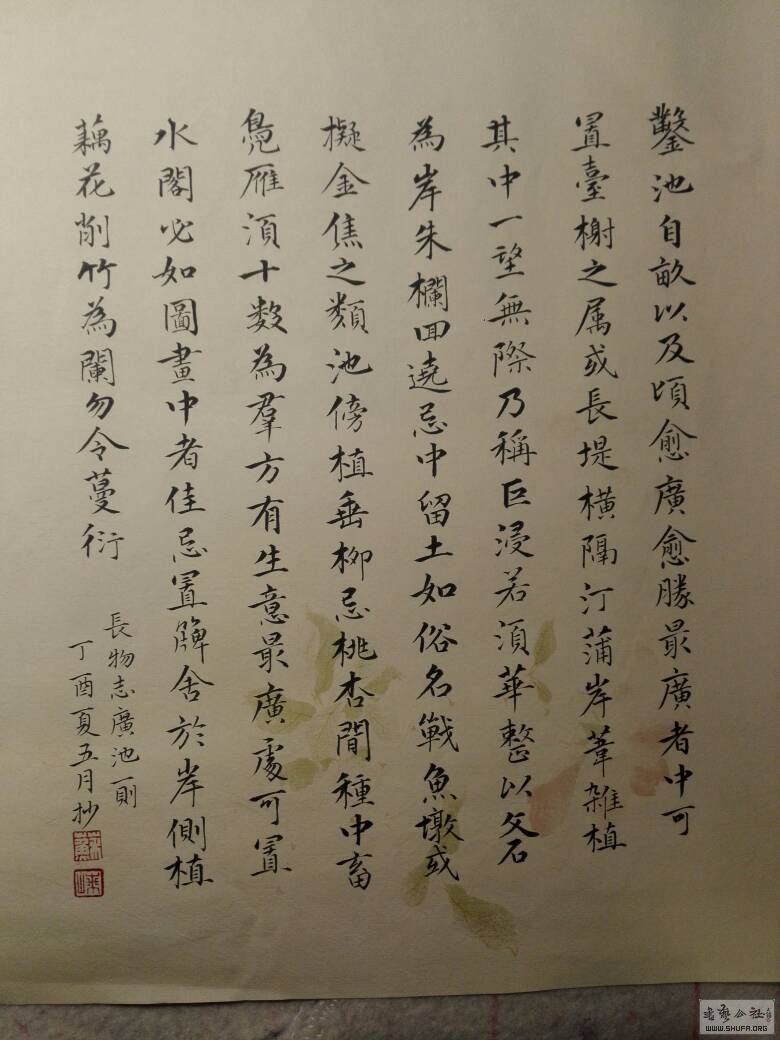 鑿池自畝以及頃愈廣愈勝最廣者中可
置臺榭之属或長堤橫隔汀蒲岸葦雜植
其中一望無際乃稱巨浸若須華整以文石
為岸朱欄回遶忌中留土如俗名戰魚墩或
擬金焦之類池傍植垂柳忌桃杏間種中畜
鳧雁須十数為羣方有生意最廣處可置
水閣必如圖畫中者佳忌置簰舍於岸側植
藕花削竹為闌勿令蔓衍
長物志廣池一則
丁酉夏五月抄
WWW.SHUFA.ORG